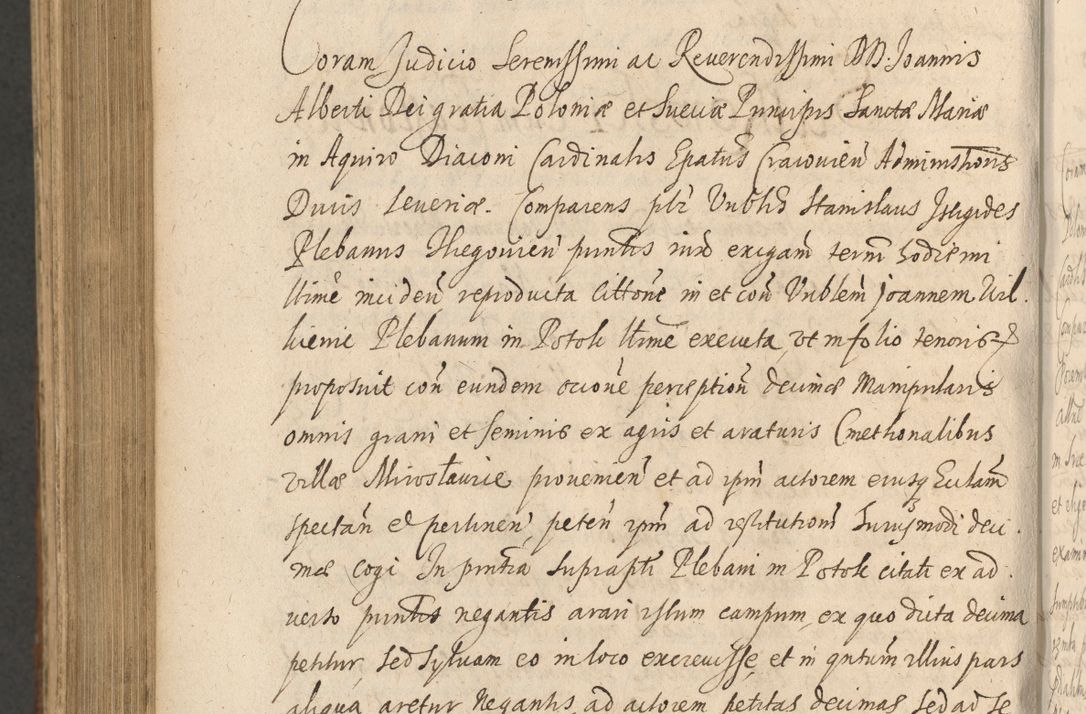 Coram Judicio Serenissimi ac Reverendissimi DD. Joannis
Alberti Dei gratia Poloniæ et Sueciæ Principis Sanctæ Mariæ
in Aquiro Diaconi Cardinalis Epatus Cracovien Administtoris
Ducis Severiæ. Comparens pltr Vnblis Stanislaus
Plebanus pnntis iure exigam term hodierni
lltime inciden reproducta Citttone in et con Vnblem Joannem Wil
Plebanum in Potok lltime executa, vt in folio tenoris
proposuit con eundem occone perception decimæ Manipularis
omnis grani et seminis ex agris et araturis Cmethonalibus
villæ Miroslawice provenien et ad ipm actorem eiusq Ecclam
spectan et pertinen, peten ipm ad restitutionm huiusmodi deci
mæ cogi In pntia suprapti Plebani in Potok citati ex ad
verso pnntis negantis arari istum campum, ex quo dicta decima
petitur sed sylvam eo in loco excrevisse, et in qntum illius pars
aliqua aretur Negantis, ad actorem petitas decimas sed ad se